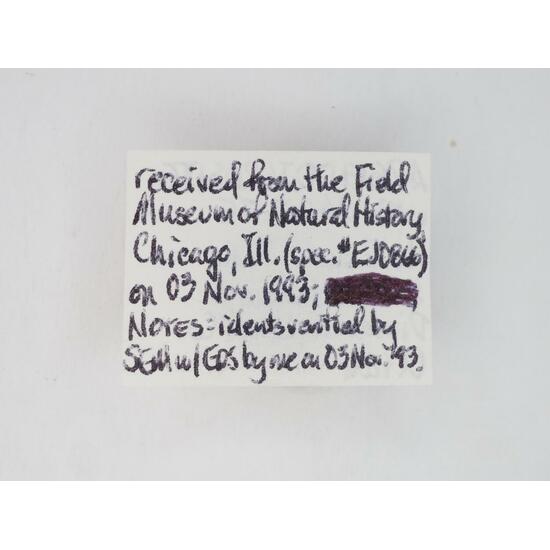 received from the Field
Museum of Natural History
Chicago, Ill. (spec.#EJD866)
on 03 Nov. 1993;
NOTES: idents verified by
SEM w/EDS by me on 03 Nov. '93.